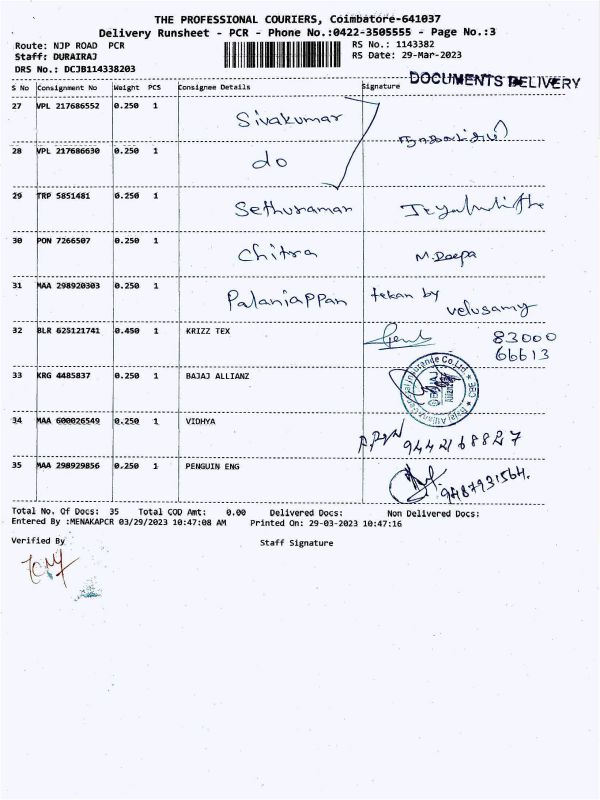 THE PROFESSIONAL COURIERS, Coimbatore-641037
Delivery Runsheet - PCR - Phone No.:0422-3505555 - Page No.:3
Route: NJP ROAD PCR
Staff: DURAIRAJ
DRS No.: DCJB114338203
RS No.: 1143382
RS Date: 29-Mar-2023
DOCUMENTS DELIVERY
S No Consignment No Weight PCS Consignee Details Signature
27 VPL 217686552 0.250 1 Sivakumar
28 VPL 217686630 0.250 1 do
29 TRP 5851481 0.250 1 Sethuraman
30 PON 7266507 0.250 1 Chitra M.Deepa
31 MAA 298920303 0.250 1 Palaniappan tekan by velusamy
32 BLR 625121741 0.450 1 KRIZZ TEX 83000
66613
33 KRG 4485837 0.250 1 BAJAJ ALLIANZ
34 MAA 600026549 0.250 1 VIDHYA 9442168827
35 MAA 298929856 0.250 1 PENGUIN ENG 9487931564.
Total No. Of Docs: 35 Total COD Amt: 0.00 Delivered Docs: Non Delivered Docs:
Entered By :MENAKAPCR 03/29/2023 10:47:08 AM Printed On: 29-03-2023 10:47:16
Verified By Staff Signature